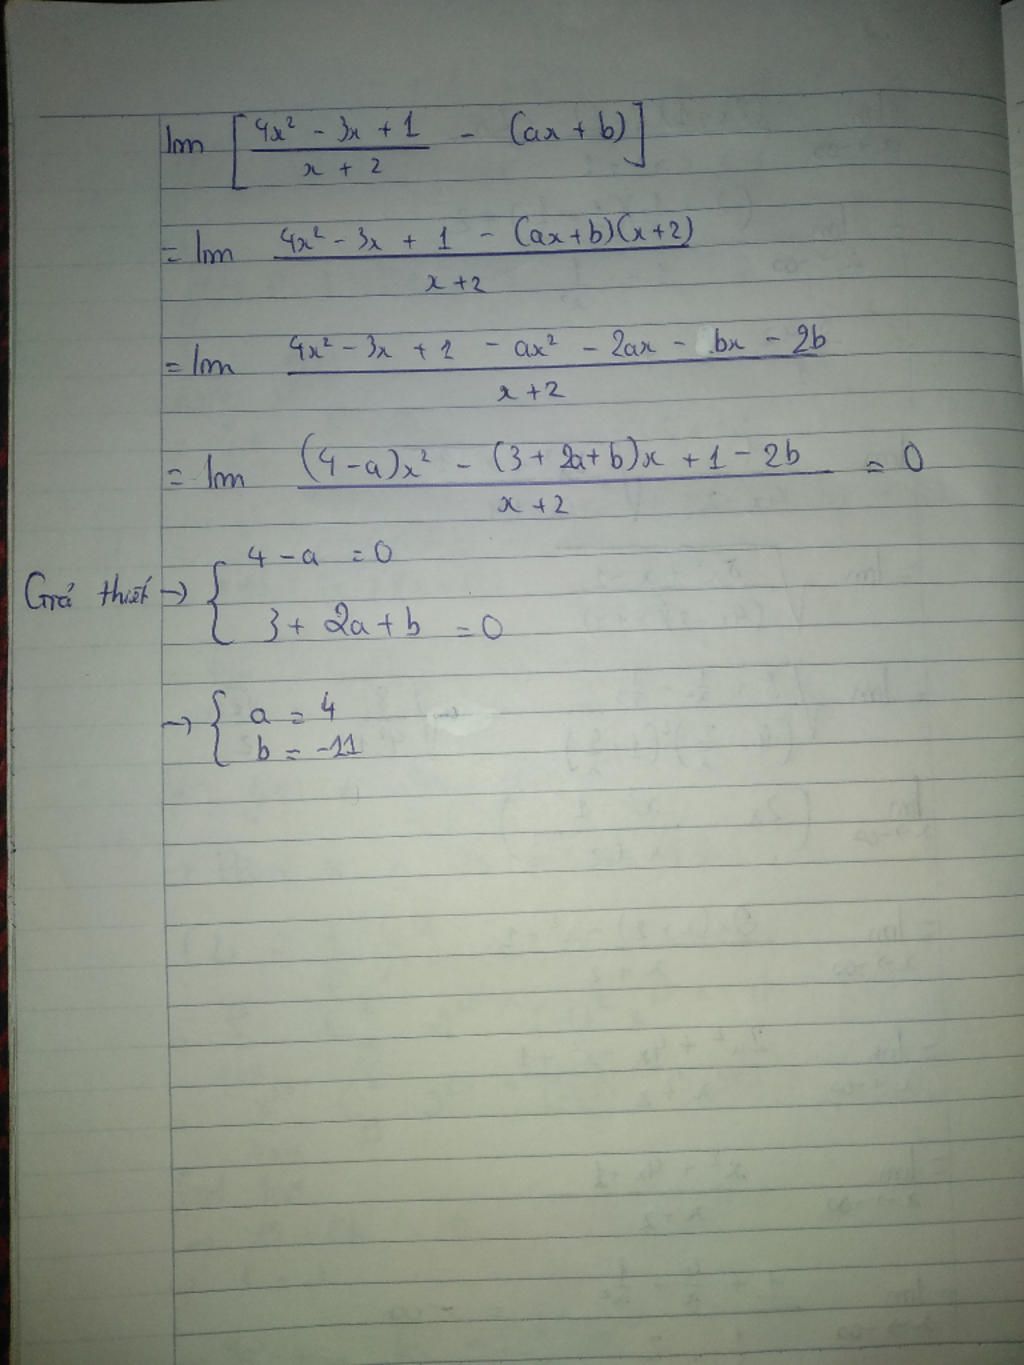 lim [ (4x² - 3x + 1)/(x + 2) - (ax + b) ]
= lim (4x² - 3x + 1 - (ax+b)(x+2))/(x+2)
= lim (4x² - 3x + 1 - ax² - 2ax - bx - 2b)/(x+2)
= lim ((4-a)x² - (3+2a+b)x + 1 - 2b)/(x+2) = 0
Giả thiết → { 4 - a = 0
3 + 2a + b = 0
→ { a = 4
b = -11